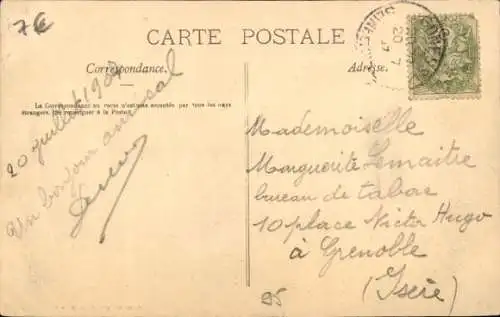 7€
CARTE POSTALE
Correspondance.
Adresse.
La Correspondance au verso n'est pas acceptée par tous les pays
étrangers. (Se renseigner à la Poste).
20 juillet 190
Un bonjour amical
Mademoiselle
Marguerite Lemaitre
bureau de tabac
10 place Victor Hugo
à Grenoble
(Isère)
95
20 7